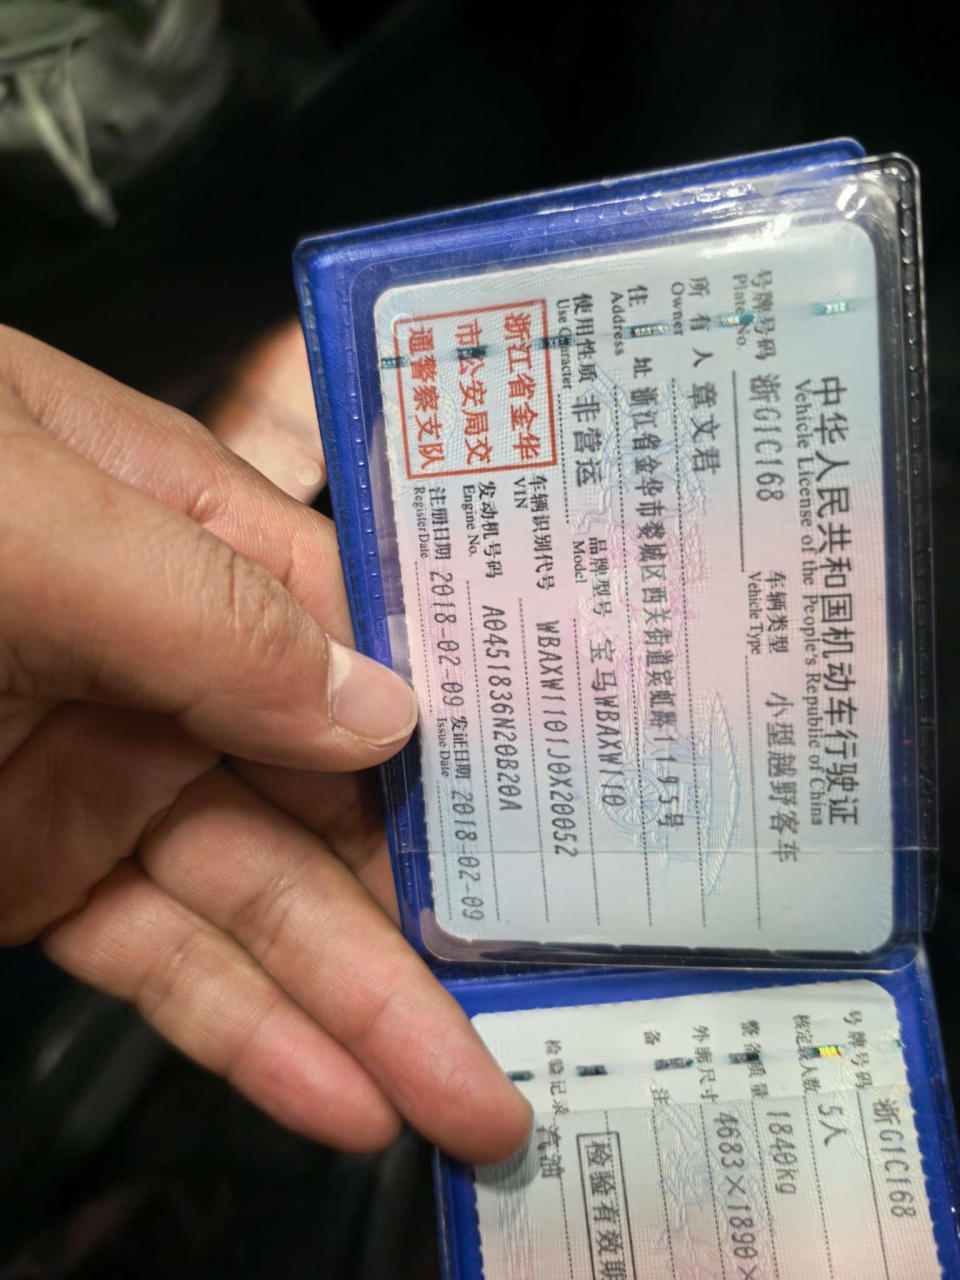 中华人民共和国机动车行驶证
Vehicle License of the People's Republic of China
号牌号码 浙G1C168 车辆类型 小型越野客车
Plate No. Vehicle Type
所有人 章文君
Owner
住址 浙江省金华市婺城区西关街道宾虹路1195号
Address
使用性质 非营运 品牌型号 宝马WBAXW110
Use Character Model
浙江省金华
市公安局交
通警察支队
车辆识别代号 WBAXW1101J0X20052
VIN
发动机号码 A0451836N20B20A
Engine No.
注册日期 2018-02-09 发证日期 2018-02-09
Register Date Issue Date
号牌号码 浙G1C168
核定载人数 5人
整备质量 1840kg
外廓尺寸 4683×1890×
备注
检验有效期
检验记录 汽油